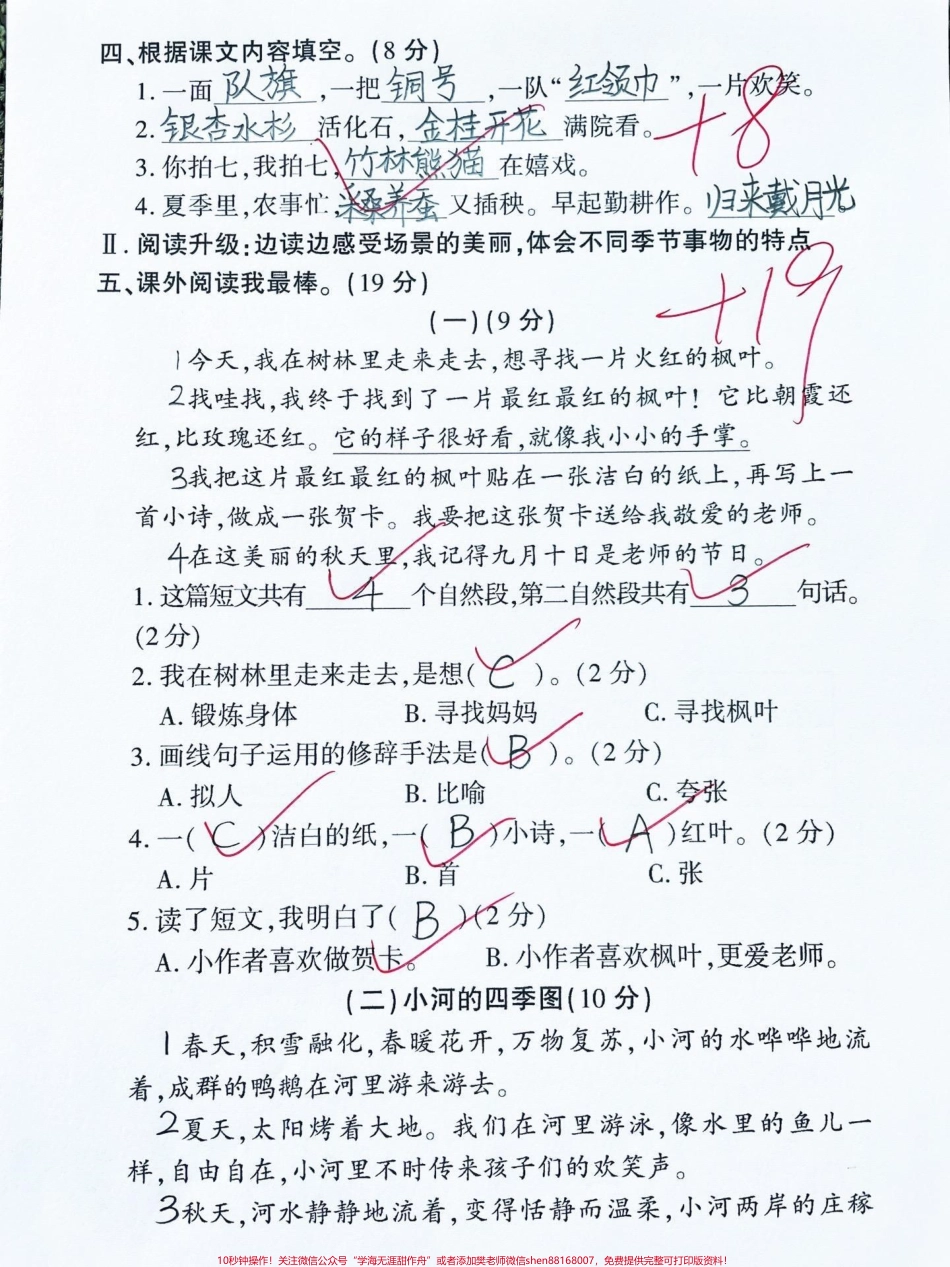 四、根据课文内容填空。(8分)
1. 一面 队旗 ,一把 铜号 ,一队“ 红领巾 ”,一片欢笑。
+8
2. 银杏水杉 活化石, 金桂开花 满院看。
3. 你拍七,我拍七, 竹林熊猫 在嬉戏。
4. 夏季里,农事忙, 采桑养蚕 又插秧。早起勤耕作。归来戴月光。
Ⅱ. 阅读升级:边读边感受场景的美丽,体会不同季节事物的特点
五、课外阅读我最棒。(19分)
+19
(一)(9分)
1今天,我在树林里走来走去,想寻找一片火红的枫叶。
2找哇找,我终于找到了一片最红最红的枫叶! 它比朝霞还
红,比玫瑰还红。它的样子很好看,就像我小小的手掌。
3我把这片最红最红的枫叶贴在一张洁白的纸上,再写上一
首小诗,做成一张贺卡。我要把这张贺卡送给我敬爱的老师。
4在这美丽的秋天里,我记得九月十日是老师的节日。
1. 这篇短文共有 4 个自然段,第二自然段共有 3 句话。
(2分)
2. 我在树林里走来走去,是想( C )。(2分)
A. 锻炼身体 B. 寻找妈妈 C. 寻找枫叶
3. 画线句子运用的修辞手法是( B )。(2分)
A. 拟人 B. 比喻 C. 夸张
4. 一( C )洁白的纸,一( B )小诗,一( A )红叶。(2分)
A. 片 B. 首 C. 张
5. 读了短文,我明白了( B )(2分)
A. 小作者喜欢做贺卡。 B. 小作者喜欢枫叶,更爱老师。
(二)小河的四季图(10分)
1春天,积雪融化,春暖花开,万物复苏,小河的水哗哗地流
着,成群的鸭鹅在河里游来游去。
2夏天,太阳烤着大地。我们在河里游泳,像水里的鱼儿一
样,自由自在,小河里不时传来孩子们的欢笑声。
3秋天,河水静静地流着,变得恬静而温柔,小河两岸的庄稼
10秒钟操作！关注微信公众号“学海无涯甜作舟”或者添加樊老师微信shen88168007，免费提供完整可打印版资料！